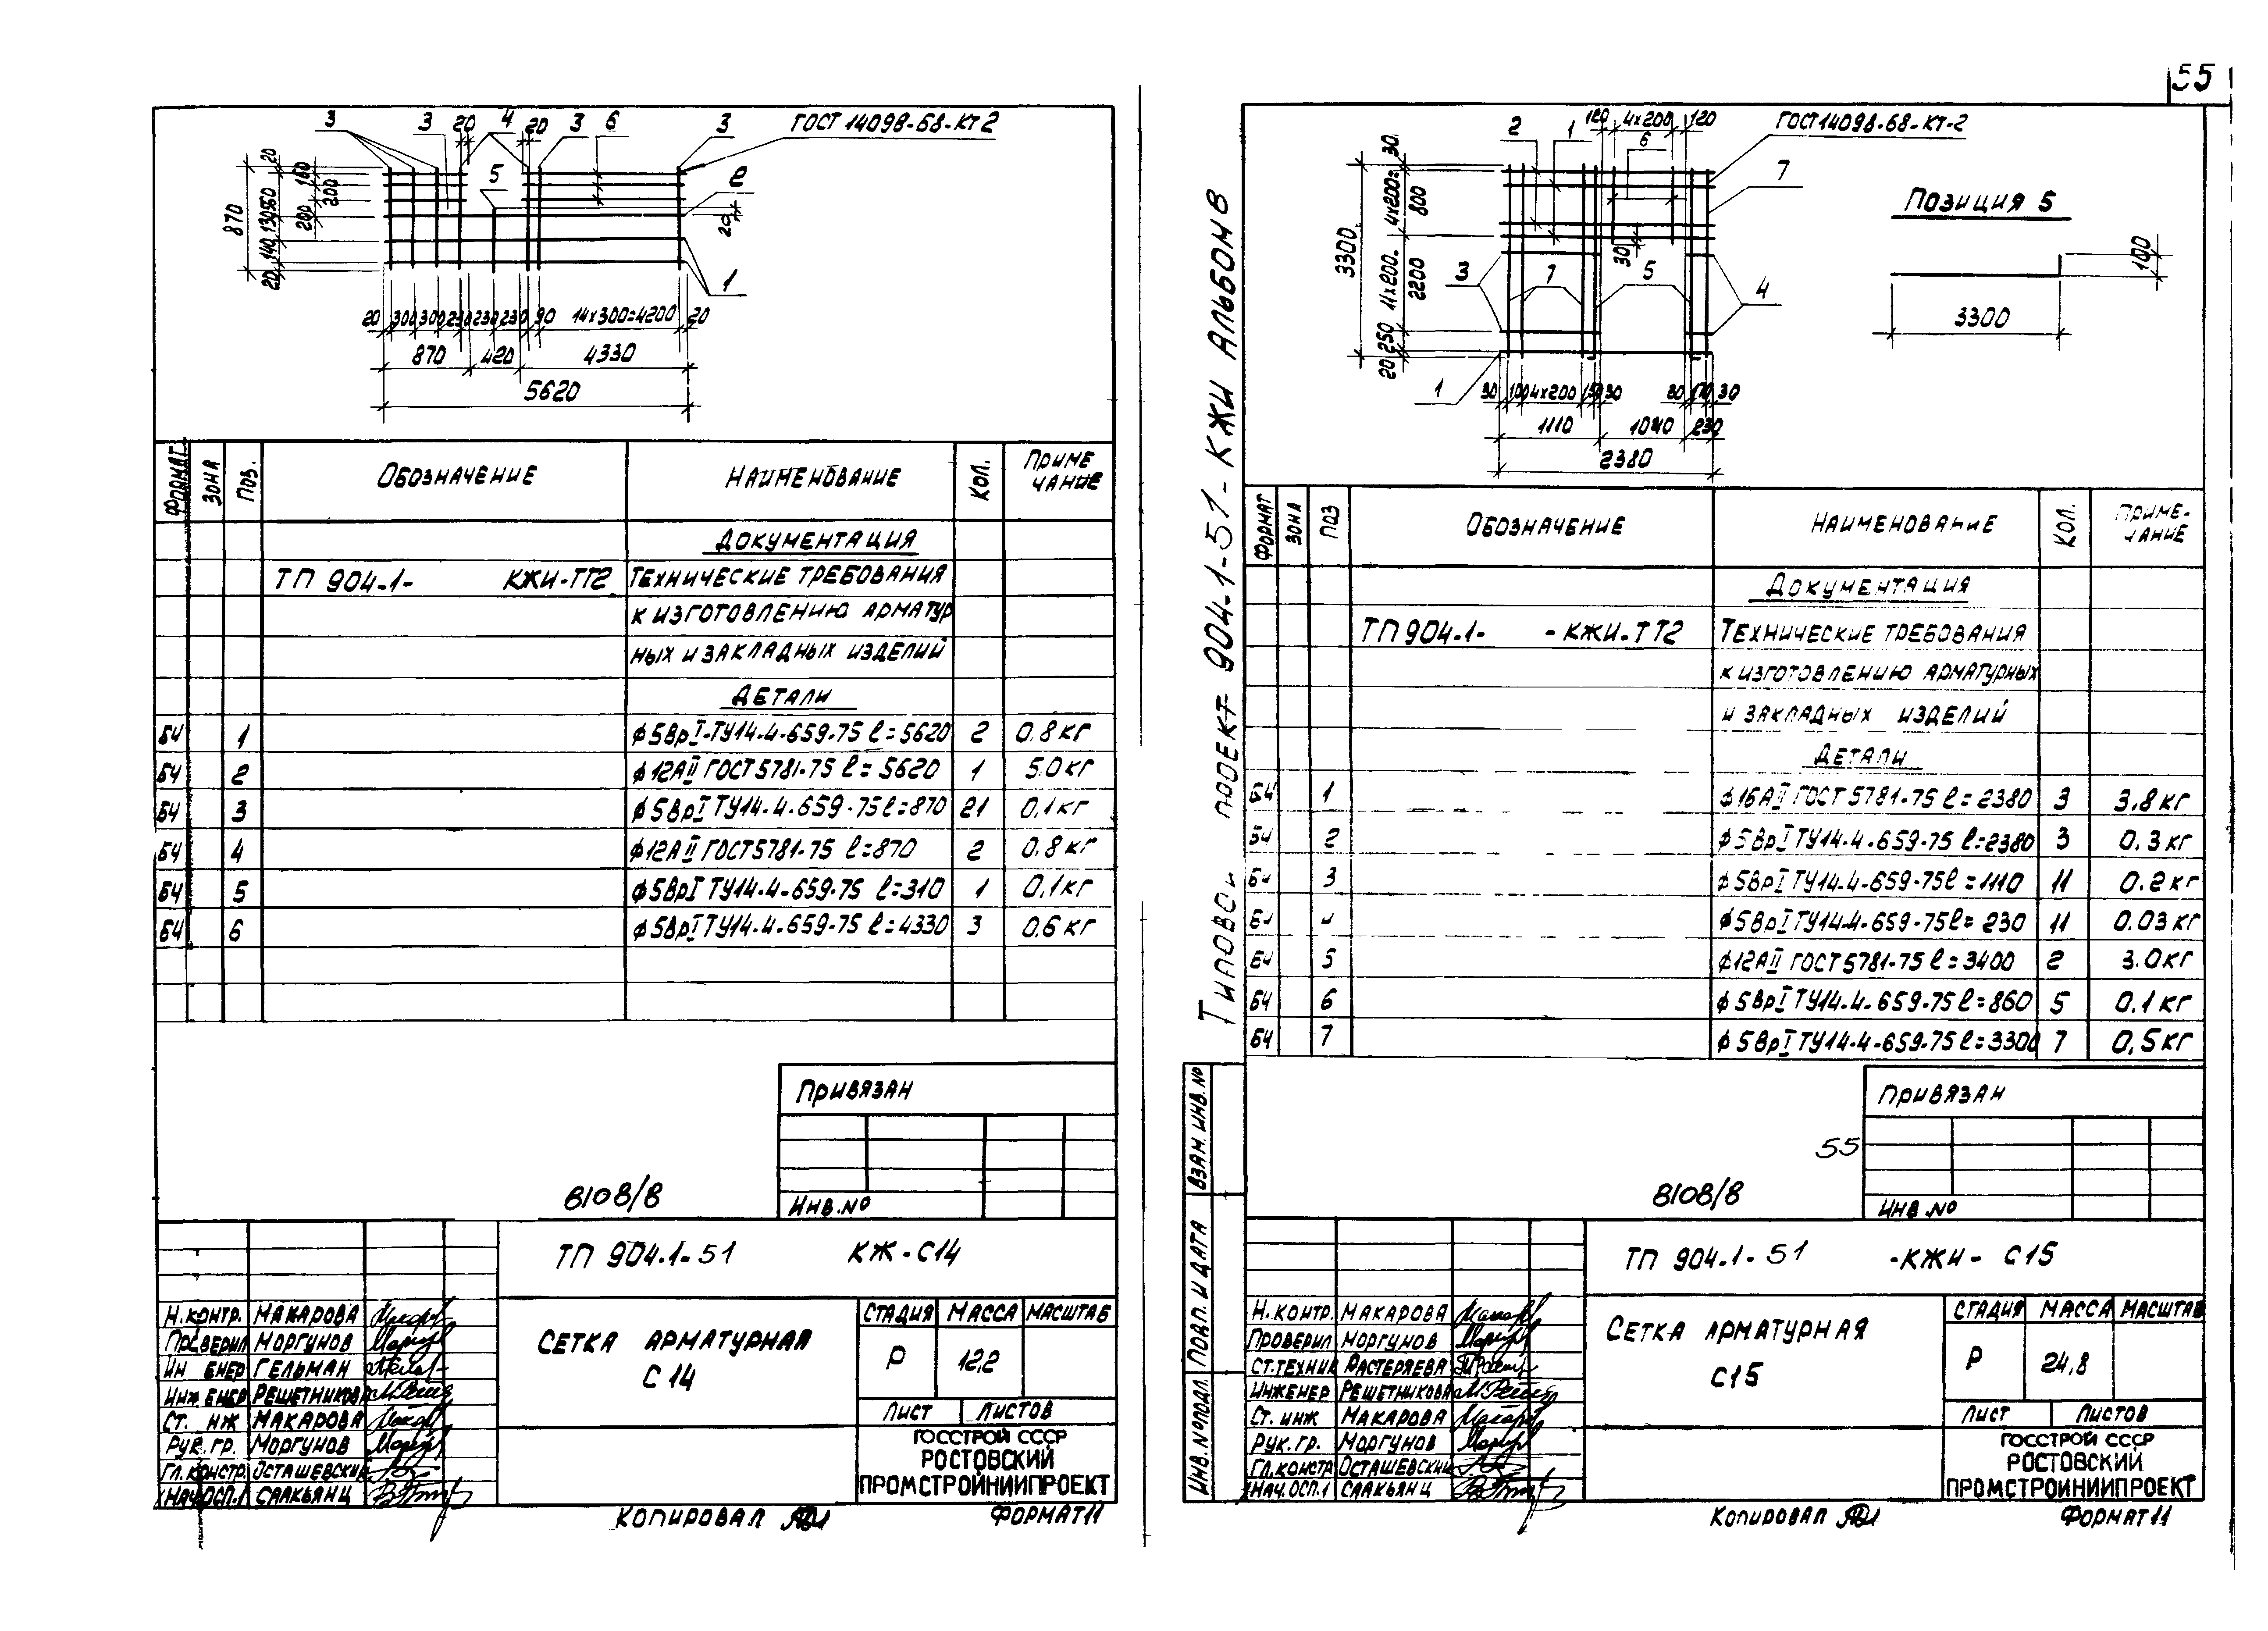 55
3 3 20 4 20 3 6 3 ГОСТ 14098-68-КТ2
5 2
870
20 130 560 140 20
160 200 200
20
1
20 300 300 230 230 230 90 14х300=4200 20
870 420 4330
5620
ФОРМАТ ЗОНА ПОЗ. ОБОЗНАЧЕНИЕ НАИМЕНОВАНИЕ КОЛ. ПРИМЕ
ЧАНИЕ
ДОКУМЕНТАЦИЯ
ТП 904-1- КЖИ-ТТ2 ТЕХНИЧЕСКИЕ ТРЕБОВАНИЯ
К ИЗГОТОВЛЕНИЮ АРМАТУР
НЫХ И ЗАКЛАДНЫХ ИЗДЕЛИЙ
ДЕТАЛИ
БЧ 1 ф5ВрI-ТУ14-4-659-75 ℓ=5620 2 0.8кг
БЧ 2 ф12АII ГОСТ5781-75 ℓ=5620 1 5.0кг
БЧ 3 ф5ВрI ТУ14-4-659-75 ℓ=870 21 0.1кг
БЧ 4 ф12АII ГОСТ5781-75 ℓ=870 2 0.8кг
БЧ 5 ф5ВрI ТУ14-4-659-75 ℓ=310 1 0,1кг
БЧ 6 ф5ВрI ТУ14-4-659-75 ℓ=4330 3 0,6кг
ПРИВЯЗАН
8108/8
ИНВ.№
ТП 904-1-51 КЖ-С14
Н.КОНТР. МАКАРОВА
ПРОВЕРИЛ МОРГУНОВ
ИН ЕНЕР ГЕЛЬМАН
ИНЖЕНЕР РЕШЕТНИКОВА
СТ. ИНЖ МАКАРОВА
РУК.ГР. МОРГУНОВ
ГЛ.КОНСТР. ОСТАШЕВСКИЙ
НАЧ.ОСП.1 СААКЬЯНЦ
СЕТКА АРМАТУРНАЯ
С 14
СТАДИЯ МАССА МАСШТАБ
Р 12,2
ЛИСТ ЛИСТОВ
ГОССТРОЙ СССР
РОСТОВСКИЙ
ПРОМСТРОЙНИИПРОЕКТ
КОПИРОВАЛ
ФОРМАТ 11
ТИПОВОЙ ПРОЕКТ 904-1-51-КЖИ АЛЬБОМ 8
ВЗАМ. ИНВ.№
ПОДП. И ДАТА
ИНВ.№ПОДЛ.
120 4х200 120 ГОСТ14098-68-КТ-2
2 1 6 7
3300
30 4х200=800 11х200=2200 250 20
30
3 7 5 4
1
30 100 4х200 150 30 80 170 30
1110 1040 230
2380
ПОЗИЦИЯ 5
100
3300
ФОРМАТ ЗОНА ПОЗ ОБОЗНАЧЕНИЕ НАИМЕНОВАНИЕ КОЛ. ПРИМЕ-
ЧАНИЕ
ДОКУМЕНТАЦИЯ
ТП904-1- -КЖИ-ТТ2 ТЕХНИЧЕСКИЕ ТРЕБОВАНИЯ
К ИЗГОТОВЛЕНИЮ АРМАТУРНЫХ
И ЗАКЛАДНЫХ ИЗДЕЛИЙ
ДЕТАЛИ
БЧ 1 ф16АI ГОСТ 5781-75 ℓ=2380 3 3,8кг
БЧ 2 ф5ВрI ТУ14-4-659-75 ℓ=2380 3 0.3кг
БЧ 3 ф5ВрI ТУ14-4-659-75ℓ=1110 11 0.2кг
БЧ 4 ф5ВрI ТУ14-4-659-75ℓ=230 11 0.03кг
БЧ 5 ф12АII ГОСТ5781-75 ℓ=3400 2 3.0кг
БЧ 6 ф5ВрI ТУ14-4-659-75 ℓ=860 5 0.1кг
БЧ 7 ф5ВрI ТУ14-4-659-75 ℓ=3300 7 0,5кг
ПРИВЯЗАН
55
8108/8
ИНВ.№
ТП 904-1-51 -КЖИ- С15
Н.КОНТР. МАКАРОВА
ПРОВЕРИЛ МОРГУНОВ
СТ.ТЕХНИК РАСТЕРЯЕВА
ИНЖЕНЕР РЕШЕТНИКОВА
СТ.ИНЖ МАКАРОВА
РУК.ГР. МОРГУНОВ
ГЛ.КОНСТР ОСТАШЕВСКИЙ
НАЧ.ОСП.1 СААКЬЯНЦ
СЕТКА АРМАТУРНАЯ
С15
СТАДИЯ МАССА МАСШТАБ
Р 24,8
ЛИСТ ЛИСТОВ
ГОССТРОЙ СССР
РОСТОВСКИЙ
ПРОМСТРОЙНИИПРОЕКТ
КОПИРОВАЛ
ФОРМАТ 11